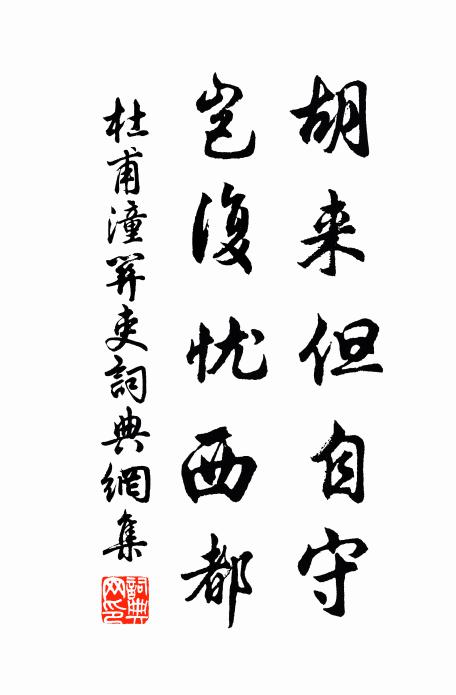 胡来但自守
岂復忧西都
杜甫潼关吏詞典網集
詞典网印